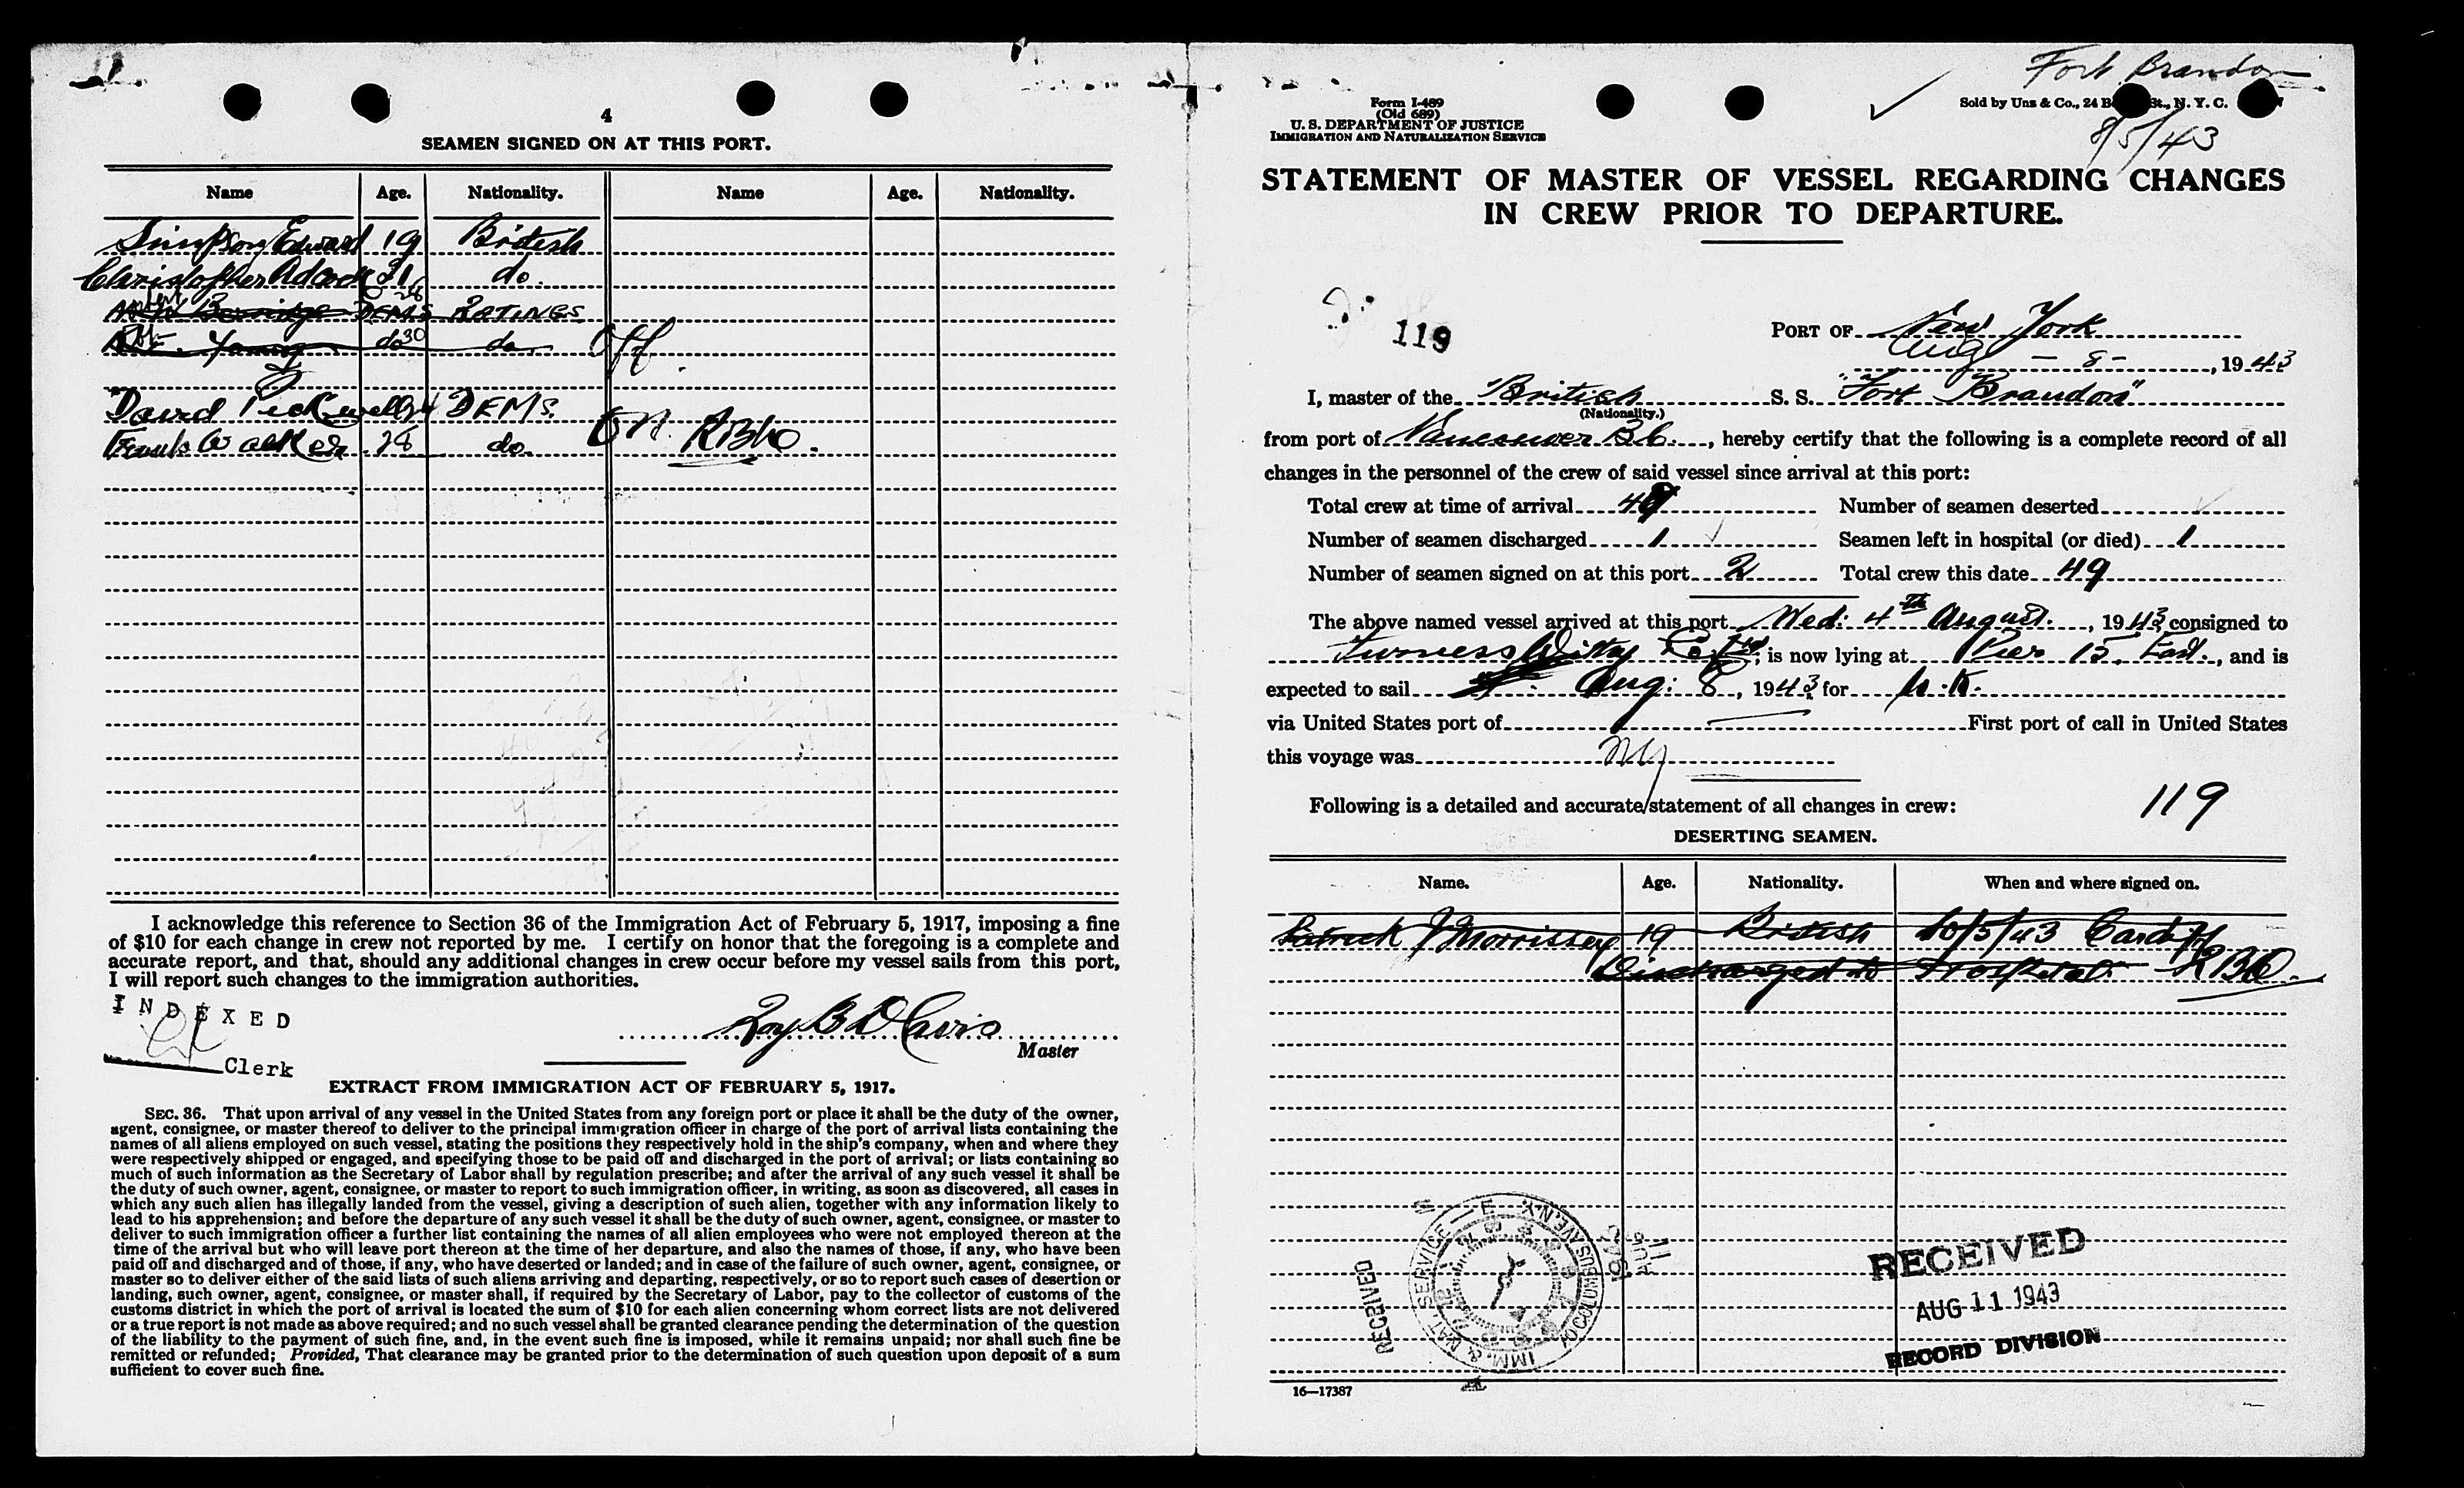 4
SEAMEN SIGNED ON AT THIS PORT.
Name Age. Nationality. Name Age. Nationality.
Simpson Edward 19 British
Christopher Adcock 21 do.
28
DEMS RATINGS
Young do 30 do Off.
David Peckwell 24 DEMS.
Frank Walker 28 do. On. RBD.
I acknowledge this reference to Section 36 of the Immigration Act of February 5, 1917, imposing a fine
of $10 for each change in crew not reported by me. I certify on honor that the foregoing is a complete and
accurate report, and that, should any additional changes in crew occur before my vessel sails from this port,
I will report such changes to the immigration authorities.
INDEXED
Clerk
Roy B Davis
Master
EXTRACT FROM IMMIGRATION ACT OF FEBRUARY 5, 1917.
SEC. 36. That upon arrival of any vessel in the United States from any foreign port or place it shall be the duty of the owner,
agent, consignee, or master thereof to deliver to the principal immigration officer in charge of the port of arrival lists containing the
names of all aliens employed on such vessel, stating the positions they respectively hold in the ship's company, when and where they
were respectively shipped or engaged, and specifying those to be paid off and discharged in the port of arrival; or lists containing so
much of such information as the Secretary of Labor shall by regulation prescribe; and after the arrival of any such vessel it shall be
the duty of such owner, agent, consignee, or master to report to such immigration officer, in writing, as soon as discovered, all cases in
which any such alien has illegally landed from the vessel, giving a description of such alien, together with any information likely to
lead to his apprehension; and before the departure of any such vessel it shall be the duty of such owner, agent, consignee, or master to
deliver to such immigration officer a further list containing the names of all alien employees who were not employed thereon at the
time of the arrival but who will leave port thereon at the time of her departure, and also the names of those, if any, who have been
paid off and discharged and of those, if any, who have deserted or landed; and in case of the failure of such owner, agent, consignee, or
master so to deliver either of the said lists of such aliens arriving and departing, respectively, or so to report such cases of desertion or
landing, such owner, agent, consignee, or master shall, if required by the Secretary of Labor, pay to the collector of customs of the
customs district in which the port of arrival is located the sum of $10 for each alien concerning whom correct lists are not delivered
or a true report is not made as above required; and no such vessel shall be granted clearance pending the determination of the question
of the liability to the payment of such fine, and, in the event such fine is imposed, while it remains unpaid; nor shall such fine be
remitted or refunded; Provided, That clearance may be granted prior to the determination of such question upon deposit of a sum
sufficient to cover such fine.
Fort Brandon
Form I-489
(Old 689)
U. S. DEPARTMENT OF JUSTICE
IMMIGRATION AND NATURALIZATION SERVICE
Sold by Unz & Co., 24 B St., N. Y. C.
8/5/43
STATEMENT OF MASTER OF VESSEL REGARDING CHANGES
IN CREW PRIOR TO DEPARTURE.
119
PORT OF New York
Aug - 8 - , 1943
I, master of the British S. S. "Fort Brandon"
(Nationality.)
from port of Vancouver B.C., hereby certify that the following is a complete record of all
changes in the personnel of the crew of said vessel since arrival at this port:
Total crew at time of arrival 49 Number of seamen deserted
Number of seamen discharged 1 Seamen left in hospital (or died) 1
Number of seamen signed on at this port 2 Total crew this date 49
The above named vessel arrived at this port Wed: 4th August. , 1943 consigned to
Furness Withy Co. Ltd, is now lying at Pier 15. East., and is
expected to sail Aug: 8, 1943 for U.K.
via United States port of First port of call in United States
this voyage was NY
Following is a detailed and accurate statement of all changes in crew:
119
DESERTING SEAMEN.
Name. Age. Nationality. When and where signed on.
Patrick J Morrissey 19 British 10/5/43 Cardiff
Discharged to Hospital. RBD.
RECEIVED
IMM. & NAT. SERVICE
70 COLUMBUS AVE. N.Y.
AUG 11 1943
RECEIVED
AUG 11 1943
RECORD DIVISION
16—17387